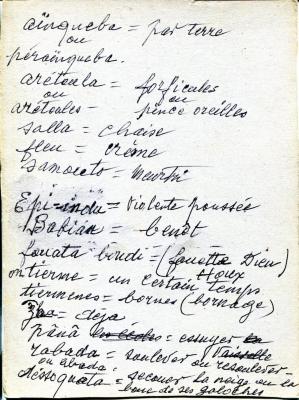 aïnqueba = par terre
ou
péraïnqueba.
arétoula = forficules
ou ou
arétoules - pince oreilles
salla = chaise
fleu = crème
samouto = meurtri
Epi-indu = Violente poussée
Babian = benêt
fouata boudi = (fouette Dieu)
Houx
ontierme = un certain temps
tiermenes = bornes (bornage)
= deja
pânâ = essuyer
vaisselle
rabada = soulever ou resoulever
ou abada
dessoquata = secouer la neige ou la
boue de ses galoches